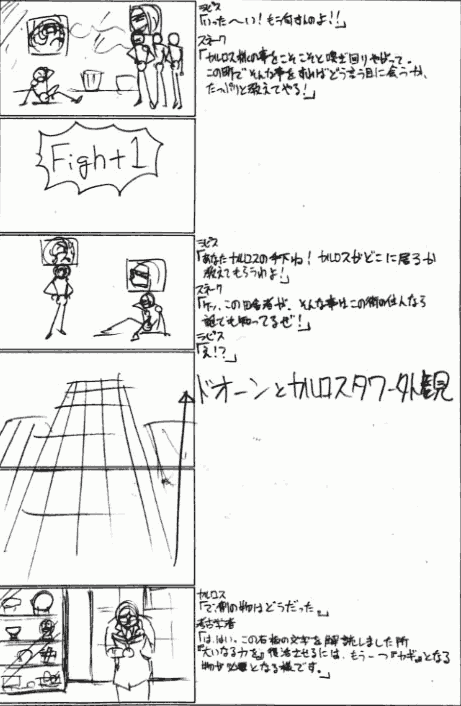 ラピス
「いった〜い！もう何すんのよ!!」
スネーク
「カルロス様の事をこそこそと嗅ぎ回りやがって。
この町でそんな事をすればどう言う目に会うか、
たっぷりと教えてやる！」
Fight1
ラピス
「あなたカルロスの手下ね！カルロスがどこに居るか
教えてもらうわよ！」
スネーク
「ケッ、この田舎者が、そんな事はこの街の住人なら
誰でも知ってるぜ！」
ラピス
「え!?」
ドオーンとカルロスタワー外観
カルロス
「で、例の物はどうだった。」
考古学者
「は、はい、この石板の文字を解読しました所
『大いなる力を』復活させるには、もう一つ『カギ』となる
物が必要となる様です。」